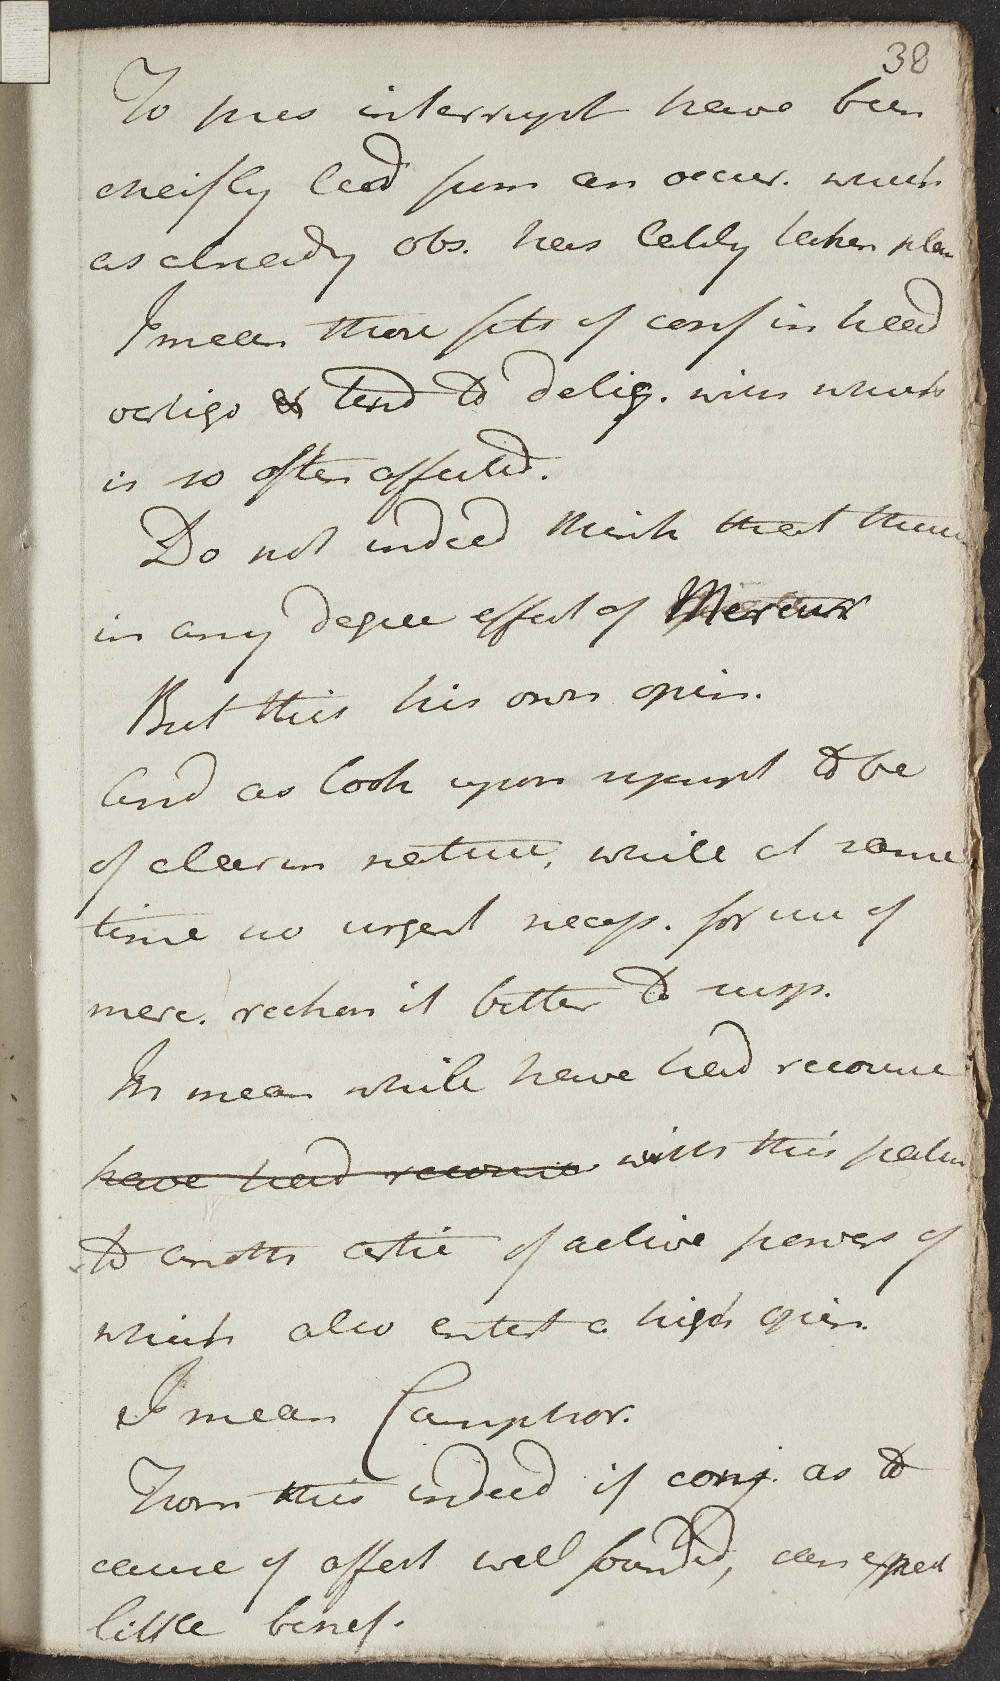 38
To pres interrupt have been
cheifly led from an occur. which
as already obs. has lately taken place
I mean those fits of conf in head
vertigo & tend to deliq. with which
is so often affected.
Do not indeed think that these
in any degree effect of Mercur
But this his own opin.
And as look upon
to be
of alarm nature, while at same
time no urgent necess. for use of
merc. reckon it better to susp.
In mean while have had recourse
have had recourse with this patien
to anoth artic of active powers of
which also entert a high opin.
I mean Camphor.
From this indeed if conj. as to
cause of affect well founded, can expect
little benef.